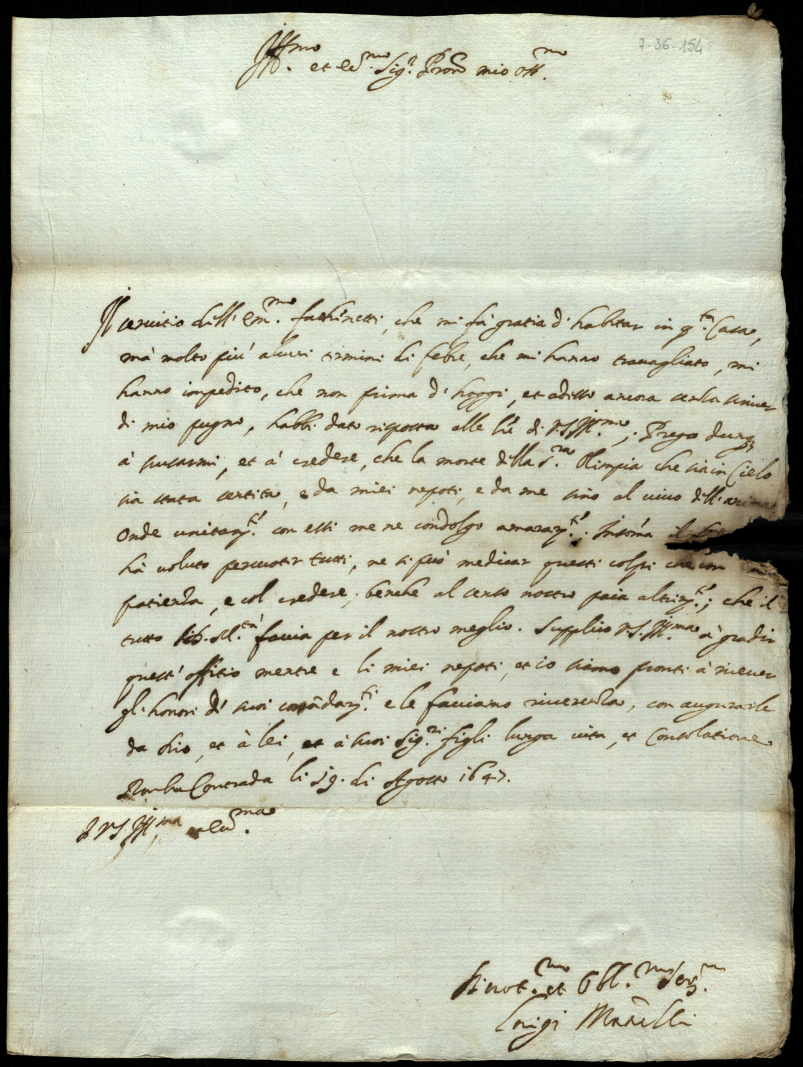 7-36-154
Ill.mo et ecc.mo Sig.r Pron mio oss.mo
Il servitio dell' Em.mo fachinetti, che mi fà gratia d' habitar in q.ta Casa,
mà molto piu' alcuni termini di febre, che mi hanno travagliato, mi
hanno impedito, che non prima d' hoggi, et adesso ancora senza scriver
di mio pugno, habbi dato risposta alle di V.S. Ill.ma; Prego
à scusarmi, et à credere, che la morte della S.ra Olimpia che sia in Cielo
sia stata sentita, e da miei nepoti, e da me sino al vivo dell' anima
Onde unitam.te con essi me ne condolgo amaram.te; Insomà il
hà voluto percuoter tutti, ne si può medicar questi colpi che con
patienza, e col credere, benche al senso nostro paia altrim.te; che il
tutto faccia per il nostro meglio. Supplico V.S. Ill.ma à gradir
quest' offitio mentre e li miei nepoti, et io siamo pronti à ricever
gl' honori de' suoi comādam.ti e le facciamo riverenza, con augurarle
da Dio, et à lei, et à suoi Sig.ri figli lunga vita, et Consolatione
Rocha Contrada li 19. di Agosto 1647.
D V.S. Ill.ma et ecc.ma
Divot.mo et Obl.mo Ser.
Luigi